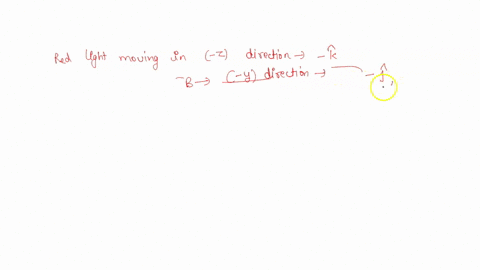 Red light moving in (-z) direction → - k̂
B → (-y) direction → - ĵ